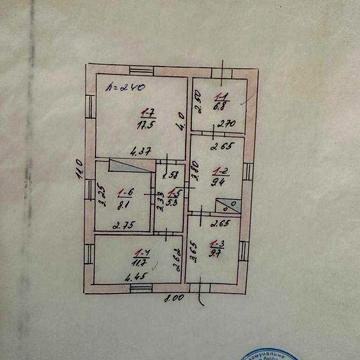 h=2.40
1-7
17.5
4.0
4.37
2.50
1-1
6.8
2.70
2.65
1-2
9.4
3.80
1.58
1-5
5.3
3.33
3.25
1-6
8.1
2.75
11.0
2.65
1-3
9.7
3.65
1-4
11.7
2.62
4.45
8.00